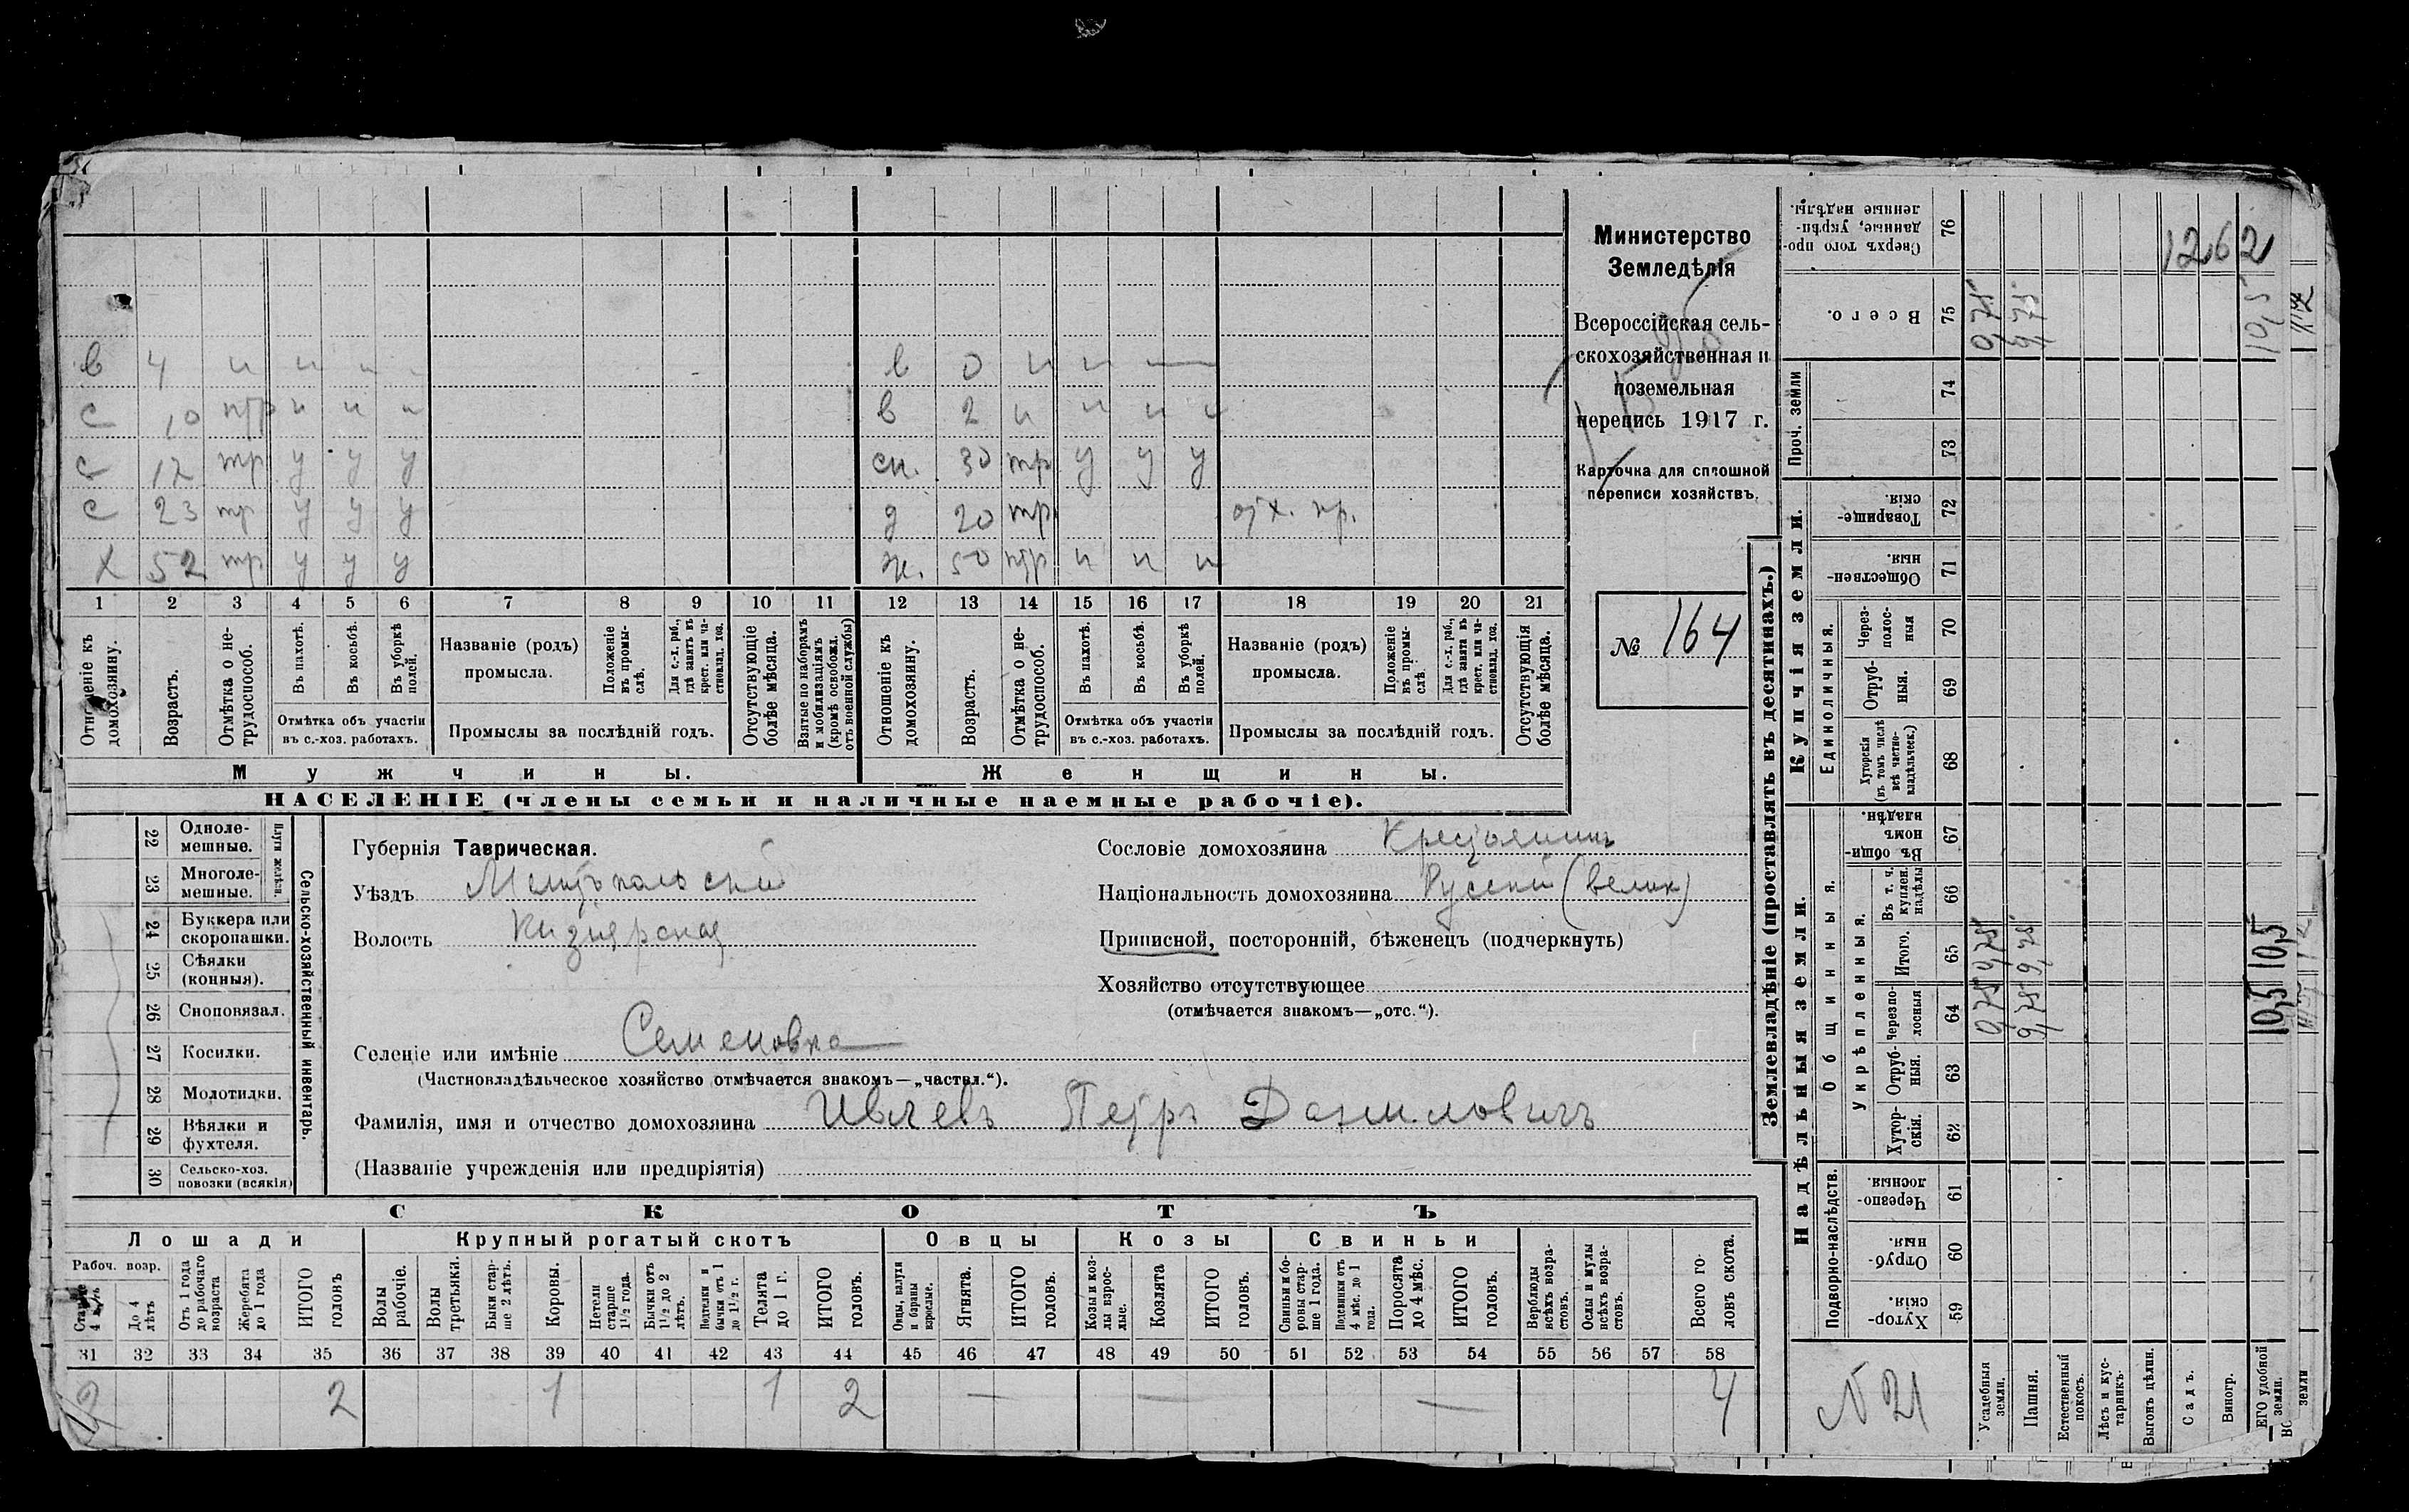 в 4 н н н -
с 10 нтр н н н
с 12 тр у у у
с 23 тр у у у
х 52 тр у у у
в 0 н н —
в 2 н н н н
сн. 30 тр у у у
д 20 тр отх. пр.
ж. 50 нтр н н н
1 2 3 4 5 6 7 8 9 10 11 12 13 14 15 16 17 18 19 20 21
Отношеніе къ домохозяину.
Возрастъ.
Отмѣтка о нетрудоспособ.
Въ пахотѣ.
Въ косьбѣ.
Въ уборкѣ полей.
Отмѣтка объ участіи
въ с.-хоз. работахъ.
Названіе (родъ)
промысла.
Положеніе въ промыслѣ.
Для с.-х. раб., гдѣ занятъ въ крест. или частновлад. хоз.
Промыслы за послѣдній годъ.
Отсутствующіе болѣе мѣсяца.
Взятые по наборамъ и мобилизаціямъ (кромѣ освобожд. отъ военной службы)
Отношеніе къ домохозяину.
Возрастъ.
Отмѣтка о нетрудоспособ.
Въ пахотѣ.
Въ косьбѣ.
Въ уборкѣ полей.
Отмѣтка объ участіи
въ с.-хоз. работахъ.
Названіе (родъ)
промысла.
Положеніе въ промыслѣ.
Для с.-х. раб., гдѣ занята въ крест. или частновлад. хоз.
Промыслы за послѣдній годъ.
Отсутствующія болѣе мѣсяца.
Мужчины.
Женщины.
НАСЕЛЕНІЕ (члены семьи и наличные наемные рабочіе).
Министерство
Земледѣлія
Всероссійская сель-
скохозяйственная и
поземельная
перепись 1917 г.
Карточка для сплошной
переписи хозяйствъ.
№ 164
22 Одноле-
мешные.
23 Многоле-
мешные.
Плуги желѣзн.
24 Буккера или
скоропашки.
25 Сѣялки
(конныя).
26 Сноповязал.
27 Косилки.
28 Молотилки.
29 Вѣялки и
фухтеля.
30 Сельско-хоз.
повозки (всякія)
Сельско-хозяйственный инвентарь.
Губернія Таврическая.
Уѣздъ Мелитопольский
Волость Кизиярская
Селеніе или имѣніе Семеновка
(Частновладѣльческое хозяйство отмѣчается знакомъ—„частвл.“).
Фамилія, имя и отчество домохозяина Ивлевъ Петръ Даниловичъ
(Названіе учрежденія или предпріятія)
Сословіе домохозяина Крестьянинъ
Національность домохозяина Русский (велик)
Приписной, посторонній, бѣженецъ (подчеркнуть)
Хозяйство отсутствующее
(отмѣчается знакомъ—„отс.“).
СКОТЪ
Лошади
Крупный рогатый скотъ
Овцы
Козы
Свиньи
Рабоч. возр.
Старше 4 лѣтъ
До 4 лѣтъ
Отъ 1 года до рабочаго возраста
Жеребята до 1 года
ИТОГО головъ
Волы рабочіе.
Волы третьяки.
Быки старше 2 лѣтъ.
Коровы.
Нетели старше 1½ года.
Бычки отъ 1½ до 2 лѣтъ.
Подтелки и бычки отъ 1 до 1½ г.
Телята до 1 г.
ИТОГО головъ.
Овцы, валухи и бараны взрослые.
Ягнята.
ИТОГО головъ.
Козы и козлы взрослые.
Козлята
ИТОГО головъ.
Свиньи и боровы старше 1 года.
Подсвинки отъ 4 мѣс. до 1 года.
Поросята до 4 мѣс.
ИТОГО головъ.
Верблюды всѣхъ возрастовъ.
Ослы и мулы всѣхъ возрастовъ.
Всего головъ скота.
31 32 33 34 35 36 37 38 39 40 41 42 43 44 45 46 47 48 49 50 51 52 53 54 55 56 57 58
2 2 1 1 2 — — — 4
Землевладѣніе (проставлять въ десятинахъ.)
Надѣльныя земли.
Купчія земли.
Проч. земли
Подворно-наслѣдств.
Общинныя.
Укрѣпленныя.
Единоличныя.
Сверхъ того проданные, укрѣпленные надѣлы. 76
Всего. 75
74
73
Товарищескія. 72
Общественныя. 71
Черезполосныя 70
Отрубныя. 69
Хуторскія (въ томъ числѣ всѣ частновладѣльческ.) 68
Въ общинномъ владѣн. 67
Въ т. ч. куплен. надѣлы 66
Итого. 65
Черезполосныя 64
Отрубныя. 63
Хуторскія. 62
Черезполосныя. 61
Отрубныя. 60
Хуторскія. 59
Усадебныя земли.
Пашня.
Естественный покосъ.
Лѣсъ и кустарникъ.
Выгонъ цѣлин.
Садъ.
Виногр.
ЕГО удобной земли.
земли
0,75 0,75 0,75
9,75 9,75 9,75
10,5 10,5 10,5
1262
N 21